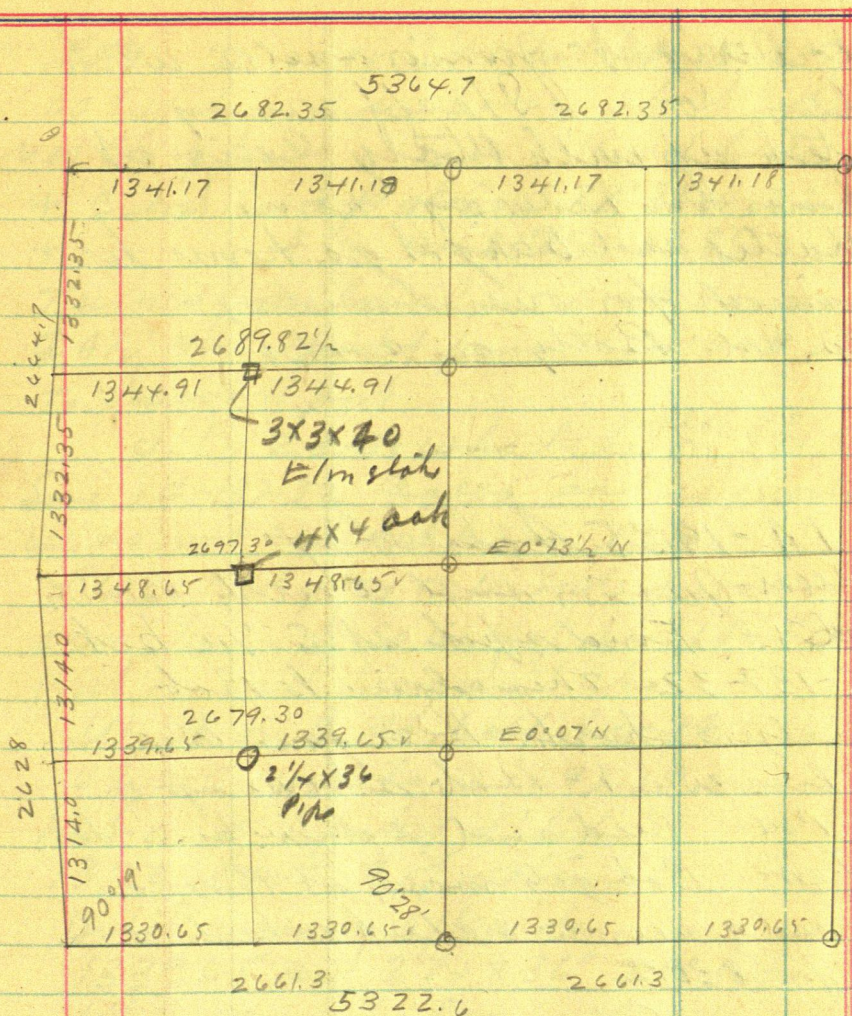 5364.7
2682.35 2682.35
1341.17 1341.18 1341.17 1341.18
1332.35
2664.7
2689.82½
1344.91 1344.91
3x3x40
Elm stake
1332.35
4x4 oak
2697.30 E 0°13½' N
1348.65 1348.65
1314.0
2679.30
1339.65 1339.65 E 0°07' N
2¼x36
Pipe
2628
1314.0
90°19' 90°28'
1330.65 1330.65 1330.65 1330.65
2661.3 2661.3
5322.6